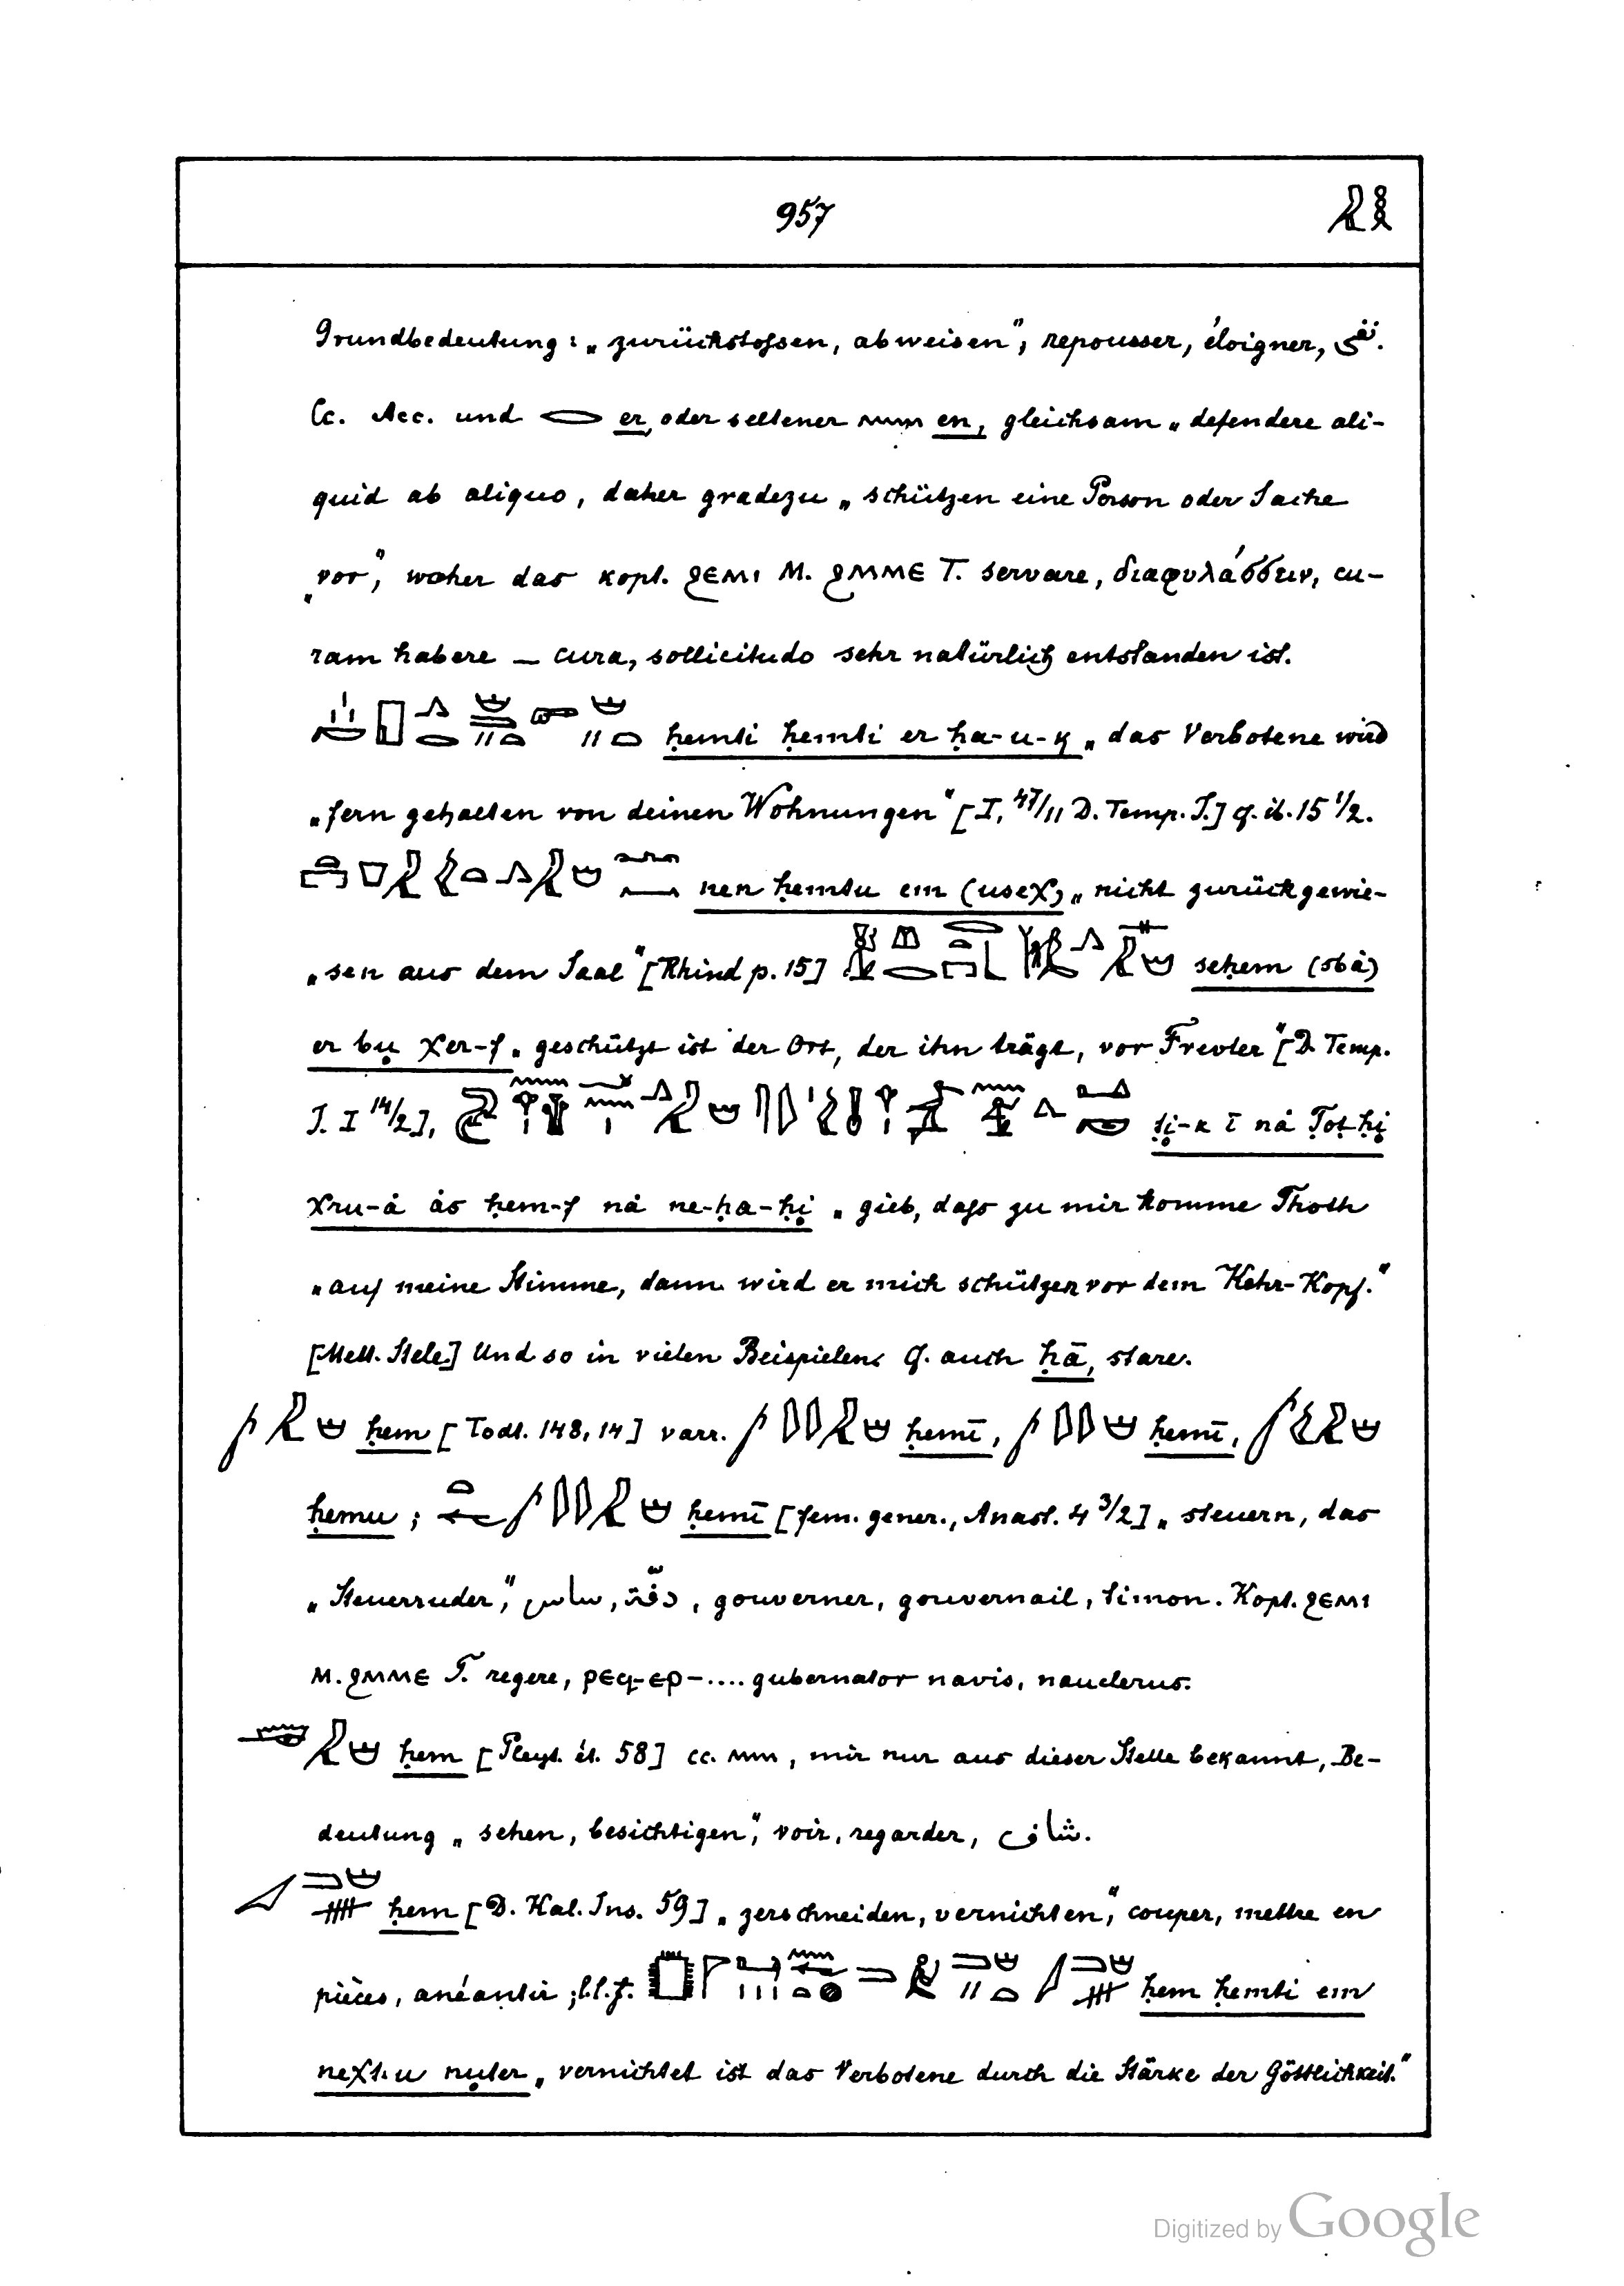 957
Grundbedeutung: „zurückstossen, abweisen“, repousser, éloigner, نفى.
Cc. Acc. und er, oder seltener en, gleichsam „defendere ali-
quid ab aliquo, daher gradezu „schützen eine Person oder Sache
„vor“, woher das kopt. ϩⲉⲙⲓ M. ϩⲙⲙⲉ T. servare, διαφυλάσσειν, cu-
ram habere – cura, sollicitudo sehr natürlich entstanden ist.
ḥemti ḥemti er ḥa-u-k „das Verbotene wird
„fern gehalten von deinen Wohnungen“ [I, 47/11 D. Temp. I.] cf. ib. 15 1/2.
nen ḥemtu em (useχ) „nicht zurückgewie-
„sen aus dem Saal“ [Rhind p. 15] seḥem (sbȧ)
er bu χer-f „geschützt ist der Ort, der ihn trägt, vor Frevler“ [D. Temp.
I. I 14/2], ṭi-k ī nȧ Ṭoṭ ḥi
χru-ȧ ȧs ḥem-f nȧ ne-ḥa-ḥi „gieb, dass zu mir komme Thoth
„auf meine Stimme, dann wird er mich schützen vor dem Kehr-Kopf.“
[Mett. Stele] Und so in vielen Beispielen. Cf. auch ḥā, stare.
ḥem [Todt. 148, 14] varr. ḥemī, ḥemī,
ḥemu; ḥemī [fem. gener., Anast. 4 3/2] „steuern, das
„Steuerruder“, دفّة, ساس, gouverner, gouvernail, timon. Kopt. ϩⲉⲙⲓ
M. ϩⲙⲙⲉ T. regere, ⲣⲉϥ-ⲉⲣ-.... gubernator navis, nauclerus.
ḥem [Pleyt. ét. 58] cc. , mir nur aus dieser Stelle bekannt, Be-
deutung „sehen, besichtigen“, voir, regarder, شاف.
ḥem [D. Kal. Ins. 59] „zerschneiden, vernichten“, couper, mettre en
pièces, anéantir; l.l.f. ḥem ḥemti em
neχt.u nuter „vernichtet ist das Verbotene durch die Stärke der Göttlichkeit.“
Digitized by Google